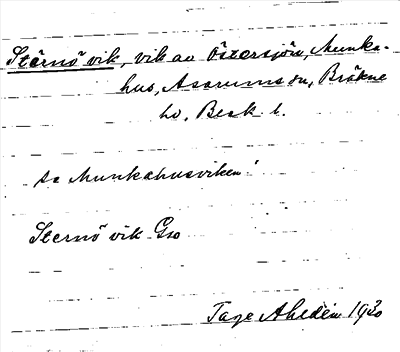 Sternö vik, vik av Östersjön, Munka-
hus, Asarums sn, Bräkne
hd, Blek. l.
se Munkahusviken!
Sternö vik Gso
Tage Ahldén 1930